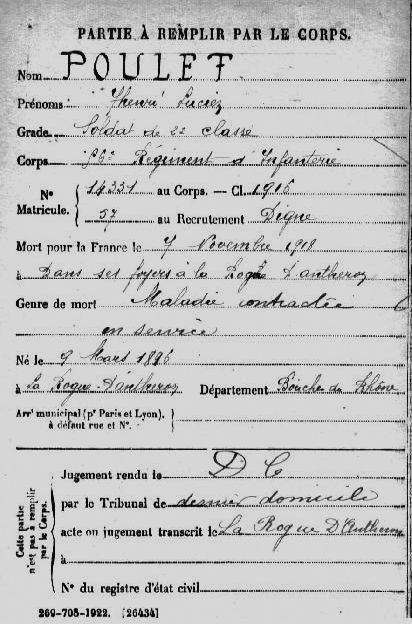 PARTIE À REMPLIR PAR LE CORPS.
Nom POULET
Prénoms Henri Lucien
Grade Soldat de 2e classe
Corps Régiment d'Infanterie
Nº Matricule. { 14331 au Corps. — Cl. 1916
57 au Recrutement Digne
Mort pour la France le 7 Novembre 1918
à Dans ses foyers à la Roque D'antheron
Genre de mort Maladie contractée
en service
Né le 9 Mars 1896
à La Roque D'antheron Département Bouche du Rhône
Arrt municipal (pr Paris et Lyon),
à défaut rue et Nº.
Cette partie n'est pas à remplir par le Corps.
Jugement rendu le D C
par le Tribunal de dernier domicile
acte ou jugement transcrit le La Roque D'Antheron
à
Nº du registre d'état civil
269-708-1922. [26434]